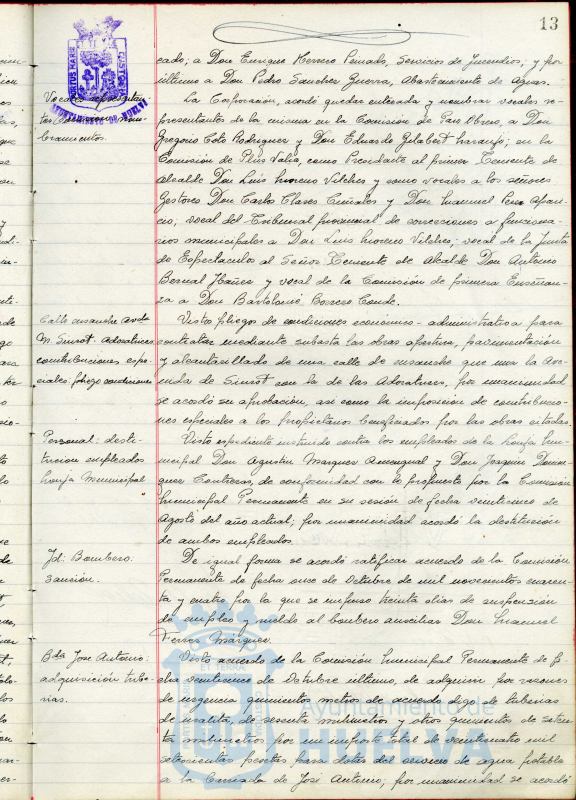 13
cado; a Don Enrique Herrero Penado, Servicios de Incendios; y por
último a Don Pedro Sanchez Guerra, Abastecimiento de Aguas.
Vocales representan-
tes
bramientos.
AYUNTAMIENTO DE HUELVA
La Corporación, acordó quedar enterada y nombrar vocales re-
presentantes de la misma en la Comisión de Paro Obrero, a Don
Gregorio Coto Rodriguez y Don Eduardo Gelabert Naranjo; en la
Comisión de Plus Valía, como Presidente al primer Teniente de
Alcalde Don Luis Moreno Vilches y como vocales a los señores
Gestores Don Carlos Claros y Don Manuel Pérez Apari-
cio; vocal del Tribunal provincial de concesiones a funciona-
rios municipales a Don Luis Moreno Vilches; vocal de la Junta
de Espectaculos al Señor Teniente de Alcalde Don Antonio
Bernal Ibañez y vocal de la Comisión de primera Enseñan-
za a Don Bartolomé Borrero Conde.
Calle ensanche Avda
M. Sunsot Adoratrices
contribuciones espe-
ciales. pliego condiciones
Visto pliegos de condiciones economico-administrativas para
contratar mediante subasta las obras apertura, pavimentación
y alcantarillado de una calle de ensanche que una la Ave-
nida de Sunsot con la de las Adoratrices, por unanimidad
se acordó su aprobación, así como la imposición de contribucio-
nes especiales a los propietarios beneficiados por las obras citadas.
Personal: desti-
tucion empleados
Lonja Municipal
Visto expediente instruido contra los empleados de la Lonja Mu-
nicipal Don Agustin Marquez Amengual y Don Joaquin Domin-
guez Contreras, de conformidad con lo propuesto por la Comisión
Municipal Permanente en su sesión de fecha veinticinco de
Agosto del año actual; por unanimidad acordó la destitución
de ambos empleados.
Id: Bombero.
Sanción.
De igual forma se acordó ratificar acuerdo de la Comisión
Permanente de fecha once de Octubre de mil novecientos cuaren-
ta y cuatro por la que se impuso treinta dias de suspensión
de empleo y sueldo al bombero auxiliar Don Manuel
Márquez.
Bda José Antonio:
adquisición tube-
rias.
Visto acuerdo de la Comisión Municipal Permanente de fe-
cha veinticinco de Octubre último, de adquirir por razones
de urgencia quinientos metros de acuerdo digo de tuberias
de uralita, de sesenta milimetros y otros quinientos de seten-
ta milimetros por un importe total de veinticuatro mil
setecientas pesetas para dotar del servicio de agua potable
a la Barriada de José Antonio; por unanimidad se acordó
Ayuntamiento de
HUELVA